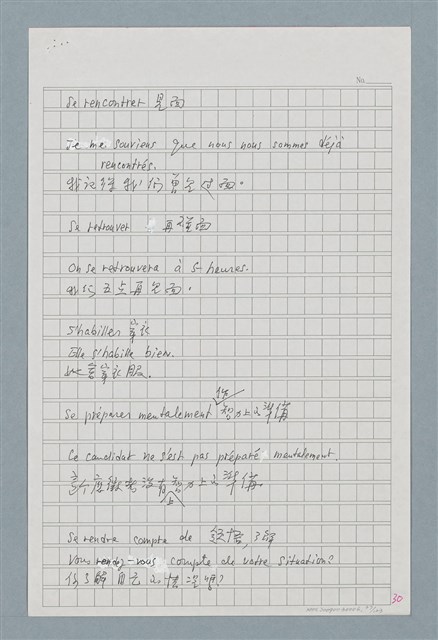 No.
Se rencontrer 見面
Je me souviens que nous nous sommes déjà
rencontrés.
我記得我们曾見过面。
Se retrouver 再碰面
On se retrouvera à 5 heures.
我们五点再見面。
S'habiller 穿衣
Elle s'habille bien.
她會穿衣服。
作
Se préparer mentalement 智力上之準備
Ce candidat ne s'est pas préparé mentalement.
應徵者没有智力上之準備。
上
Se rendre compte de 了解
Vous rendez-vous compte de votre situation?
你了解自己的情况嗎?
30